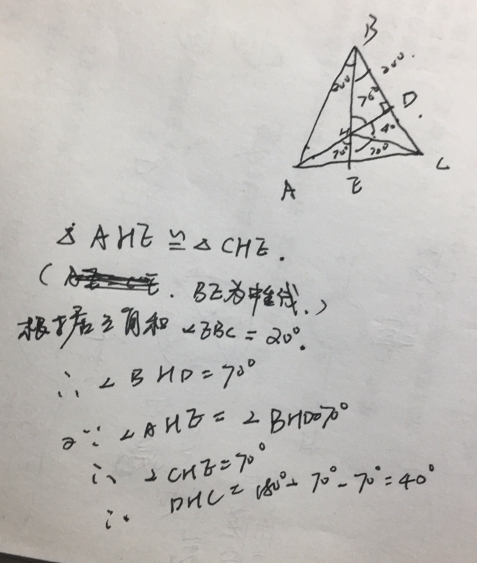 B
20°
20°
70°
D.
H
40°
70°
70°
A
E
C
△AHE≌△CHE.
(BE为中线.)
根据三角和∠EBC=20°.
∴∠BHD=70°
又∵∠AHE=∠BHD=70°
∴∠CHE=70°
∴DHC=180°-70°-70°=40°